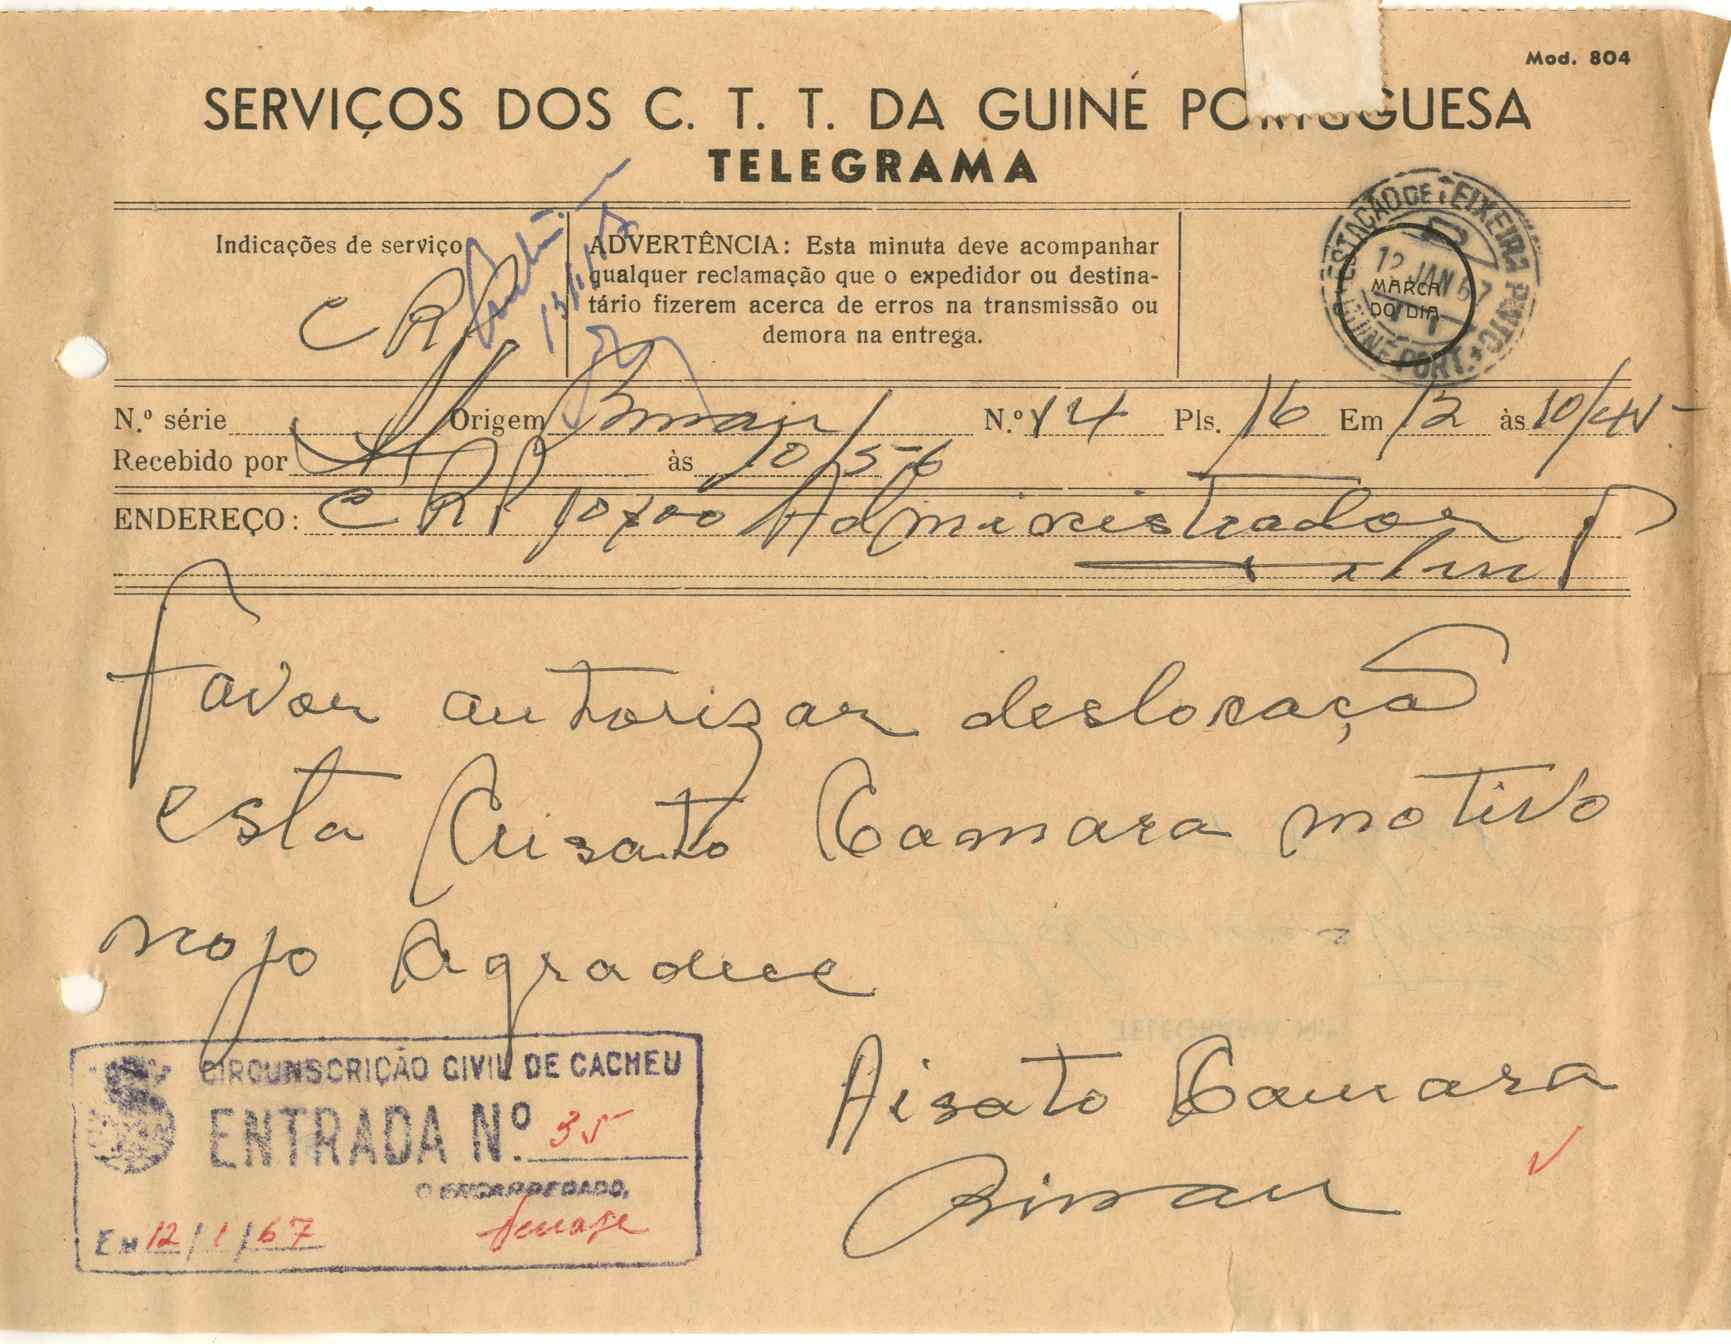 Mod. 804
SERVIÇOS DOS C. T. T. DA GUINÉ PORTUGUESA
TELEGRAMA
Indicações de serviço
CRP
13/1/67
ADVERTÊNCIA: Esta minuta deve acompanhar
qualquer reclamação que o expedidor ou destina-
tário fizerem acerca de erros na transmissão ou
demora na entrega.
ESTAÇÃO DE TEIXEIRA PINTO
GUINÉ PORT.
12 JAN 67
MARCA
DO DIA
N.º série Origem Bissau N.º 14 Pls. 16 Em 12 às 10/45
Recebido por às 10/50
ENDEREÇO: CRP Administrador
Favor autorizar deslocaçã
esta Aisato Camara motivo
nojo Agradece
Aisato Camara
Bissau
CIRCUNSCRIÇÃO CIVIL DE CACHEU
ENTRADA N.º 35
O ENCARREGADO,
EM 12/1/67